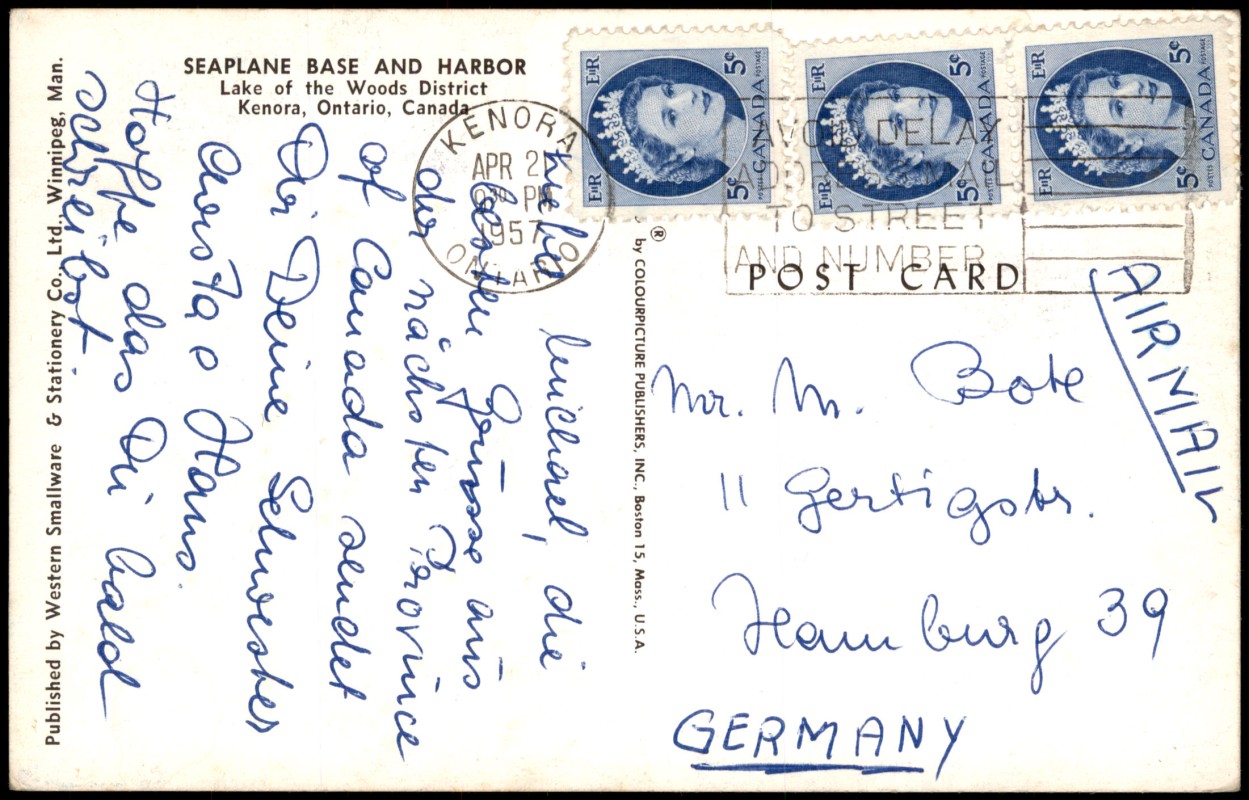 SEAPLANE BASE AND HARBOR
Lake of the Woods District
Kenora, Ontario, Canada
Published by Western Smallware & Stationery Co., Ltd., Winnipeg, Man.
Lieber Michael, die
besten Grüsse aus
der nächsten Province
of Canada sendet
Dir Deine Schwester
Christa & Hans.
Hoffe das Du bald
schreibst.
KENORA
APR 2
PM
1957
ONTARIO
EIIR
5¢
CANADA
POSTES
POSTAGE
5¢
EIIR
EIIR
5¢
CANADA
POSTES
POSTAGE
5¢
EIIR
EIIR
5¢
CANADA
POSTES
POSTAGE
5¢
EIIR
AVOID DELAY
ADDRESS MAIL
TO STREET
AND NUMBER
® by COLOURPICTURE PUBLISHERS, INC., Boston 15, Mass., U.S.A.
POST CARD
AIR MAIL
Mr. M. Bote
11 Gertigstr.
Hamburg 39
GERMANY